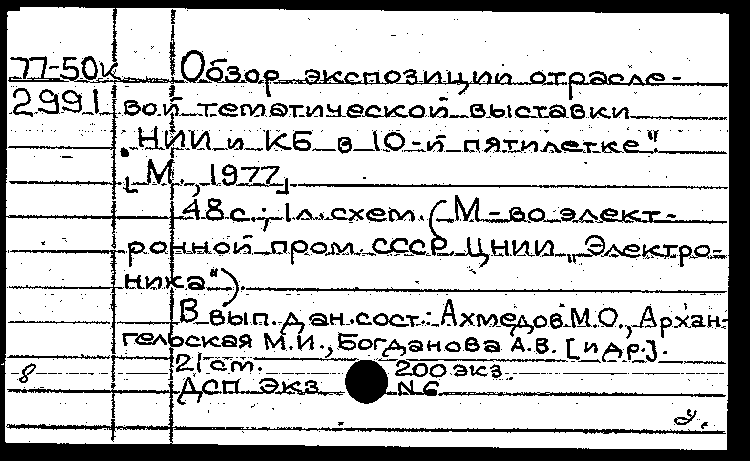 77-50к Обзор экспозиции отрасле-
2991 вой тематической выставки
"НИИ и КБ в 10-й пятилетке".
[М., 1977]
48 с.; 1 л. схем. (М-во элект-
ронной пром. СССР. ЦНИИ „Электро-
ника").
В вып. дан. сост.: Ахмедов М.О., Архан-
гельская М.И., Богданова А.В. [и др.].
8 21 ст. 200 экз.
ДСП Экз. N 6
у.